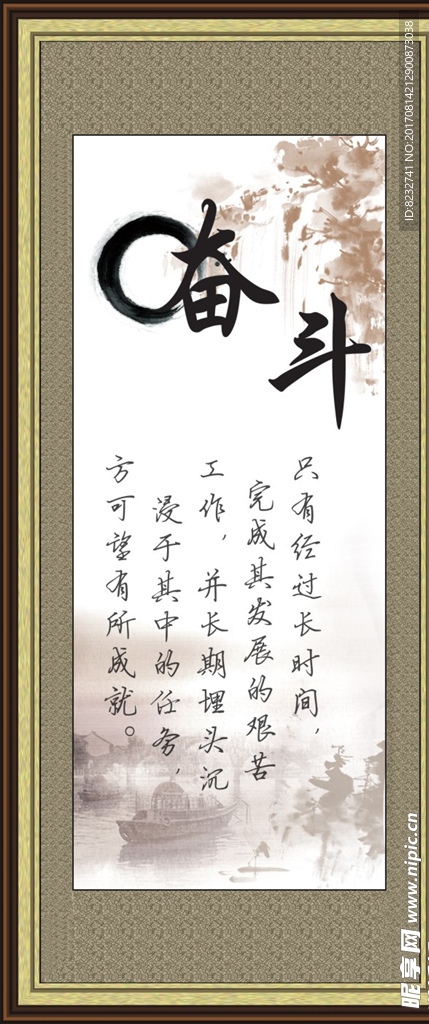 奋斗
只有经过长时间，
完成其发展的艰苦
工作，并长期埋头沉
浸于其中的任务，
方可望有所成就。
ID:8232741 NO:20170814212900873038
昵享网 www.nipic.cn